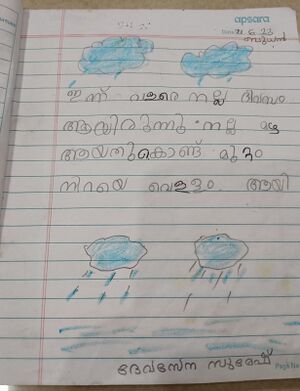 apsara
Date 21.6.23
ബുധൻ
ഇന്ന് വളരെ നല്ല ദിവസം
ആയിരുന്നു നല്ല മഴ
ആയതുകൊണ്ട് മുറ്റം
നിറയെ വെള്ളം ആയി
ദേവസേന സുരേഷ്
Page No